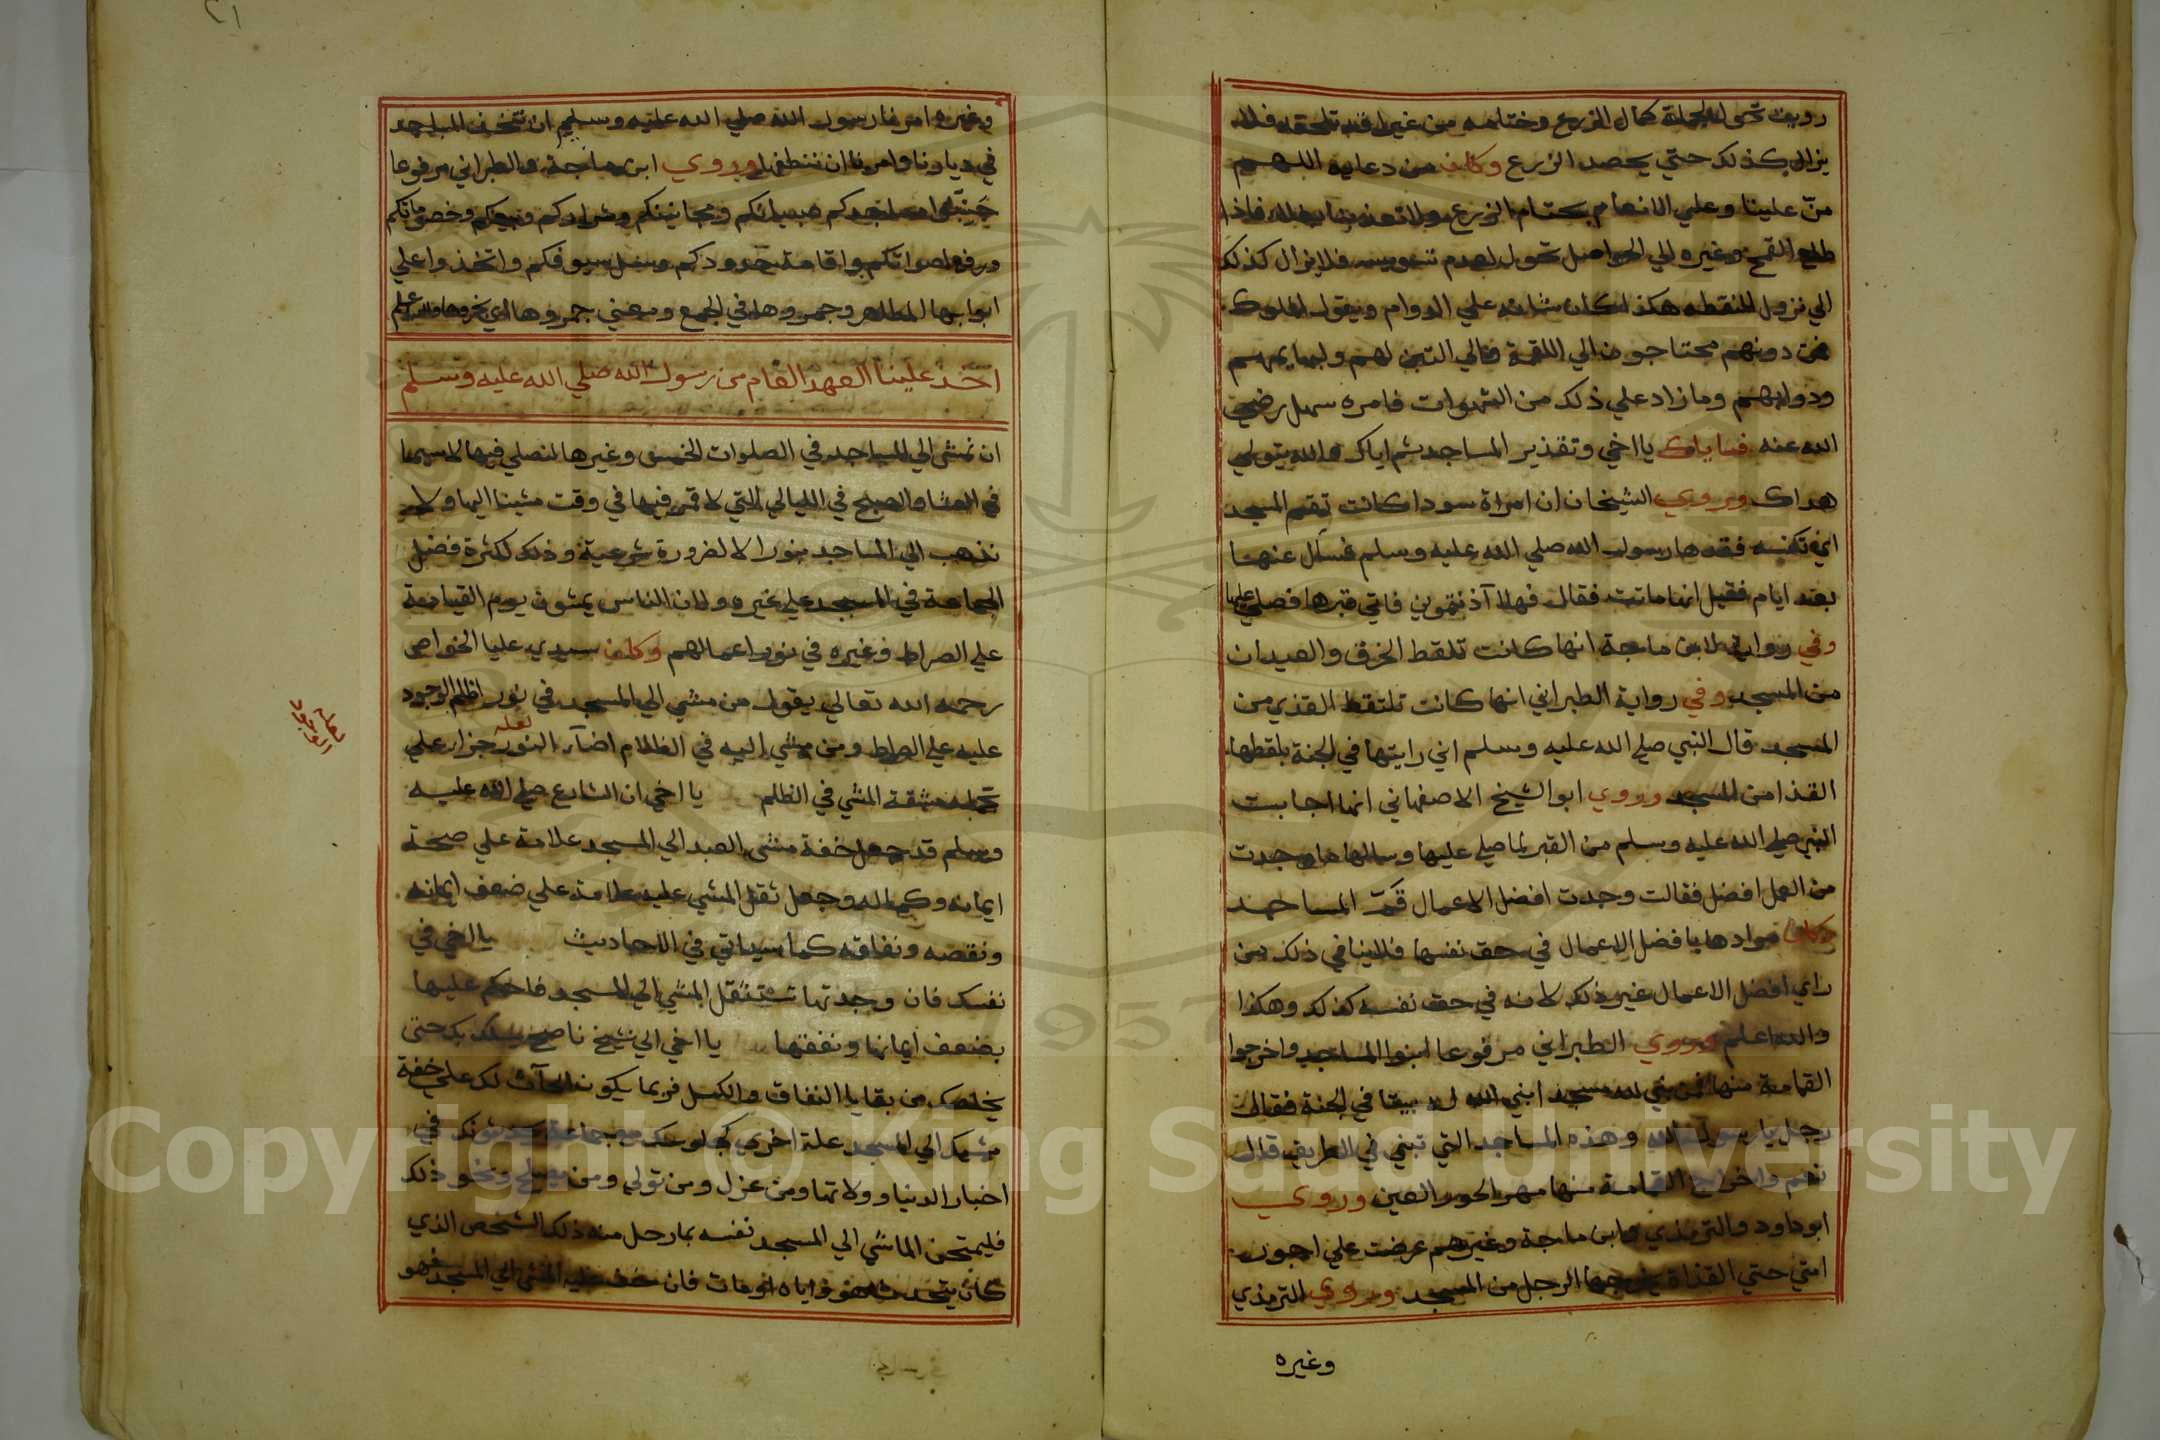 رويت تحول لحملة كمال الزرع وختامه من غير افة تلحقه فلا
يزال كذلك حتي يحصد الزرع وكان من دعايه اللهم
منّ علينا وعلي الانعام بختام الزرع ولا تعذبنا فاذا
طلع القمح وغيره الي الحواصل تحول لعدم تسويسه فلا يزال كذلك
الي نزول النقطة هكذا كان شانه علي الدوام ويقول الملوك
فمن دونهم محتاجون الي اللقمة والي التبن لهم ولبهايمهم
ودوابهم وما زاد علي ذلك من الشهوات فامره سهل رضي
الله عنه فاياك يا اخي وتقذير المساجد ثم اياك والله يتولي
هداك وروي الشيخان ان امراة سودا كانت تقم المسجد
اي تكنسه ففقدها رسول الله صلي الله عليه وسلم فسأل عنها
بعد ايام فقيل انها ماتت فقال فهلا آذنتموني فاتي قبرها فصلي عليها
وفي رواية لابن ماجة انها كانت تلقط الخرق والعيدان
من المسجد وفي رواية الطبراني انها كانت تلتقط القذي من
المسجد قال النبي صلي الله عليه وسلم اني رايتها في الجنة بلقطها
القذا من المسجد وروي ابو الشيخ الاصفهاني انها اجابت
النبي صلي الله عليه وسلم من القبر لما صلي عليها وسالها ما وجدت
من العمل افضل فقالت وجدت افضل الاعمال قَمّ المساجد
وكان مرادها بافضل الاعمال في حق نفسها فلاينافي ذلك من
راي افضل الاعمال غير ذلك لانه في حق نفسه كذلك وهكذا
والله اعلم وروي الطبراني مرفوعا ابنوا المساجد واخرجوا
القمامة منها فمن بني لله مسجد ابني الله له بيتا في الجنة فقال
رجل يا رسول الله وهذه المساجد التي تبني في الطريق قال
نعم واخراج القمامة منها مهر الحور العين وروي
ابو داود والترمذي وابن ماجة وغيرهم عرضت علي اجور
امتي حتي القذاة يخرجها الرجل من المسجد وروي الترمذي
وغيره
وغيره امرنا رسول الله صلي الله عليه وسلم ان نتخذ المساجد
في ديارنا وامرنا ان ننظفها وروي ابن ماجة والطبراني مرفوعا
جَنِّبُوا مساجدكم صبيانكم ومجانينكم وشراركم وبيعكم وخصوماتكم
ورفع اصواتكم واقامة حدودكم وسل سيوفكم واتخذوا علي
ابوابها المطاهر وجمروها في الجمع ومعني جمروها اي بخروها والله اعلم
اخذ علينا العهد العام من رسول الله صلي الله عليه وسلم
ان نمشي الي المساجد في الصلوات الخمس وغيرها لنصلي فيها لا سيما
في العشا والصبح في الليالي التي لا قمر فيها في وقت مشينا اليها ولا
نذهب الي المساجد بنور الا لضرورة شرعية وذلك لكثرة فضل
الجماعة في المسجد علي غيره ولان الناس يمشون يوم القيامة
علي الصراط وغيره في نور اعمالهم وكان سيدي عليا الخواص
رحمه الله تعالي يقول من مشي الي المسجد في نور اظلم الوجود
لعله الوجود
عليه علي الصراط ومن مشي اليه في الظلام اضآء النور جزاء علي
لعله
تحمله مشقة المشي في الظلم يا اخي ان الشارع صلي الله عليه
وسلم قد جعل خفة مشي العبد الي المسجد علامة علي صحة
ايمانه وكماله وجعل ثقل المشي عليه علامة علي ضعف ايمانه
ونقصه ونفاقه كما سياتي في الاحاديث يا اخي في
نفسك فان وجدتها تستثقل المشي الي المسجد فاحكم عليها
بضعف ايمانها ونفقتها يا اخي الي شيخ ناصح يسلك بك حتي
يخلصك من بقايا النفاق والكسل فربما يكون الباعث لك علي خفة
مشيك الي المسجد علة اخري كجلوسك مع جماعة يحدثونك في
اخبار الدنيا وولاتها ومن عزل ومن تولي ومن ونحو ذلك
فليمتحن الماشي الي المسجد نفسه بما رحل منه ذلك الشخص الذي
كان يتحدث هو واياه او مات فان خف عليه المشي الي المسجد فهو
Copyright © King Saud University
1957